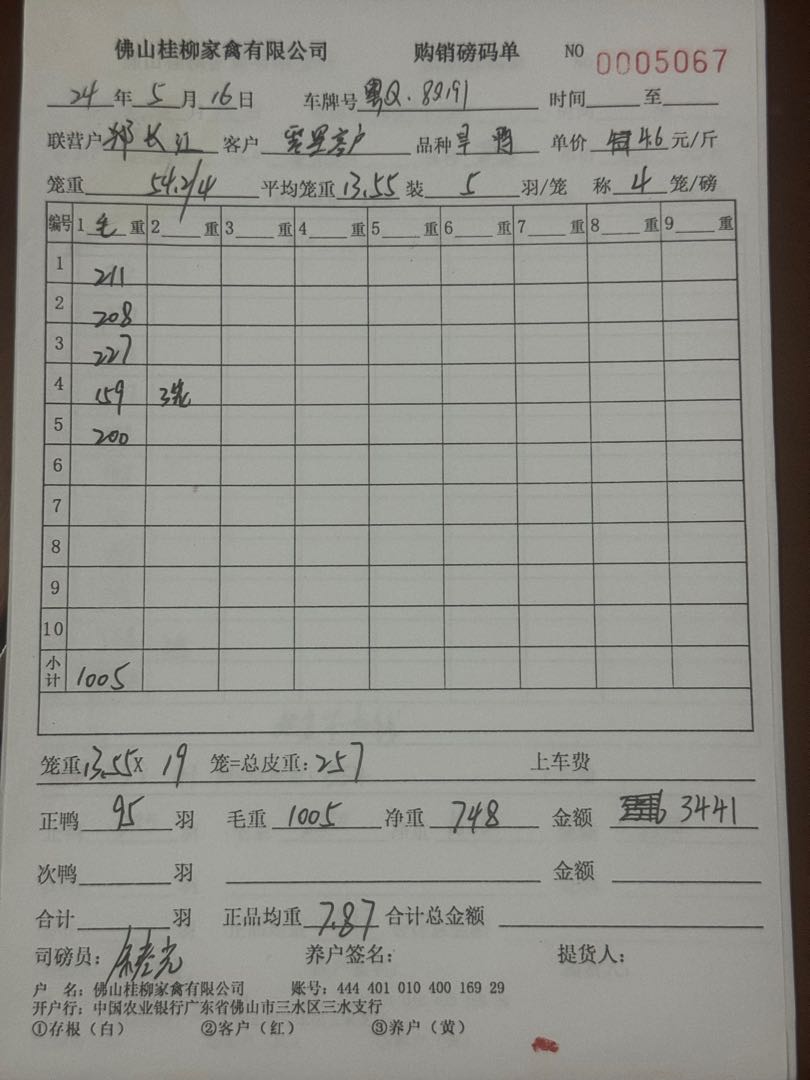 佛山桂柳家禽有限公司 购销磅码单 NO 0005067
24年5月16日 车牌号粤Q·82191 时间____至____
联营户郑长江 客户零星客户 品种旱鸭 单价4.6元/斤
笼重54.2/4 平均笼重13.55装5羽/笼 称4笼/磅
编号 1毛重 2____重 3____重 4____重 5____重 6____重 7____重 8____重 9____重
1 211
2 208
3 227
4 159 3笼
5 200
6
7
8
9
10
小计 1005
笼重13.55X19笼=总皮重:257 上车费
正鸭95羽 毛重1005净重748 金额3441
次鸭____羽 金额____
合计____羽 正品均重7.87合计总金额____
司磅员: 养户签名: 提货人:
户 名: 佛山桂柳家禽有限公司 账号: 444 401 010 400 169 29
开户行: 中国农业银行广东省佛山市三水区三水支行
①存根(白) ②客户(红) ③养户(黄)